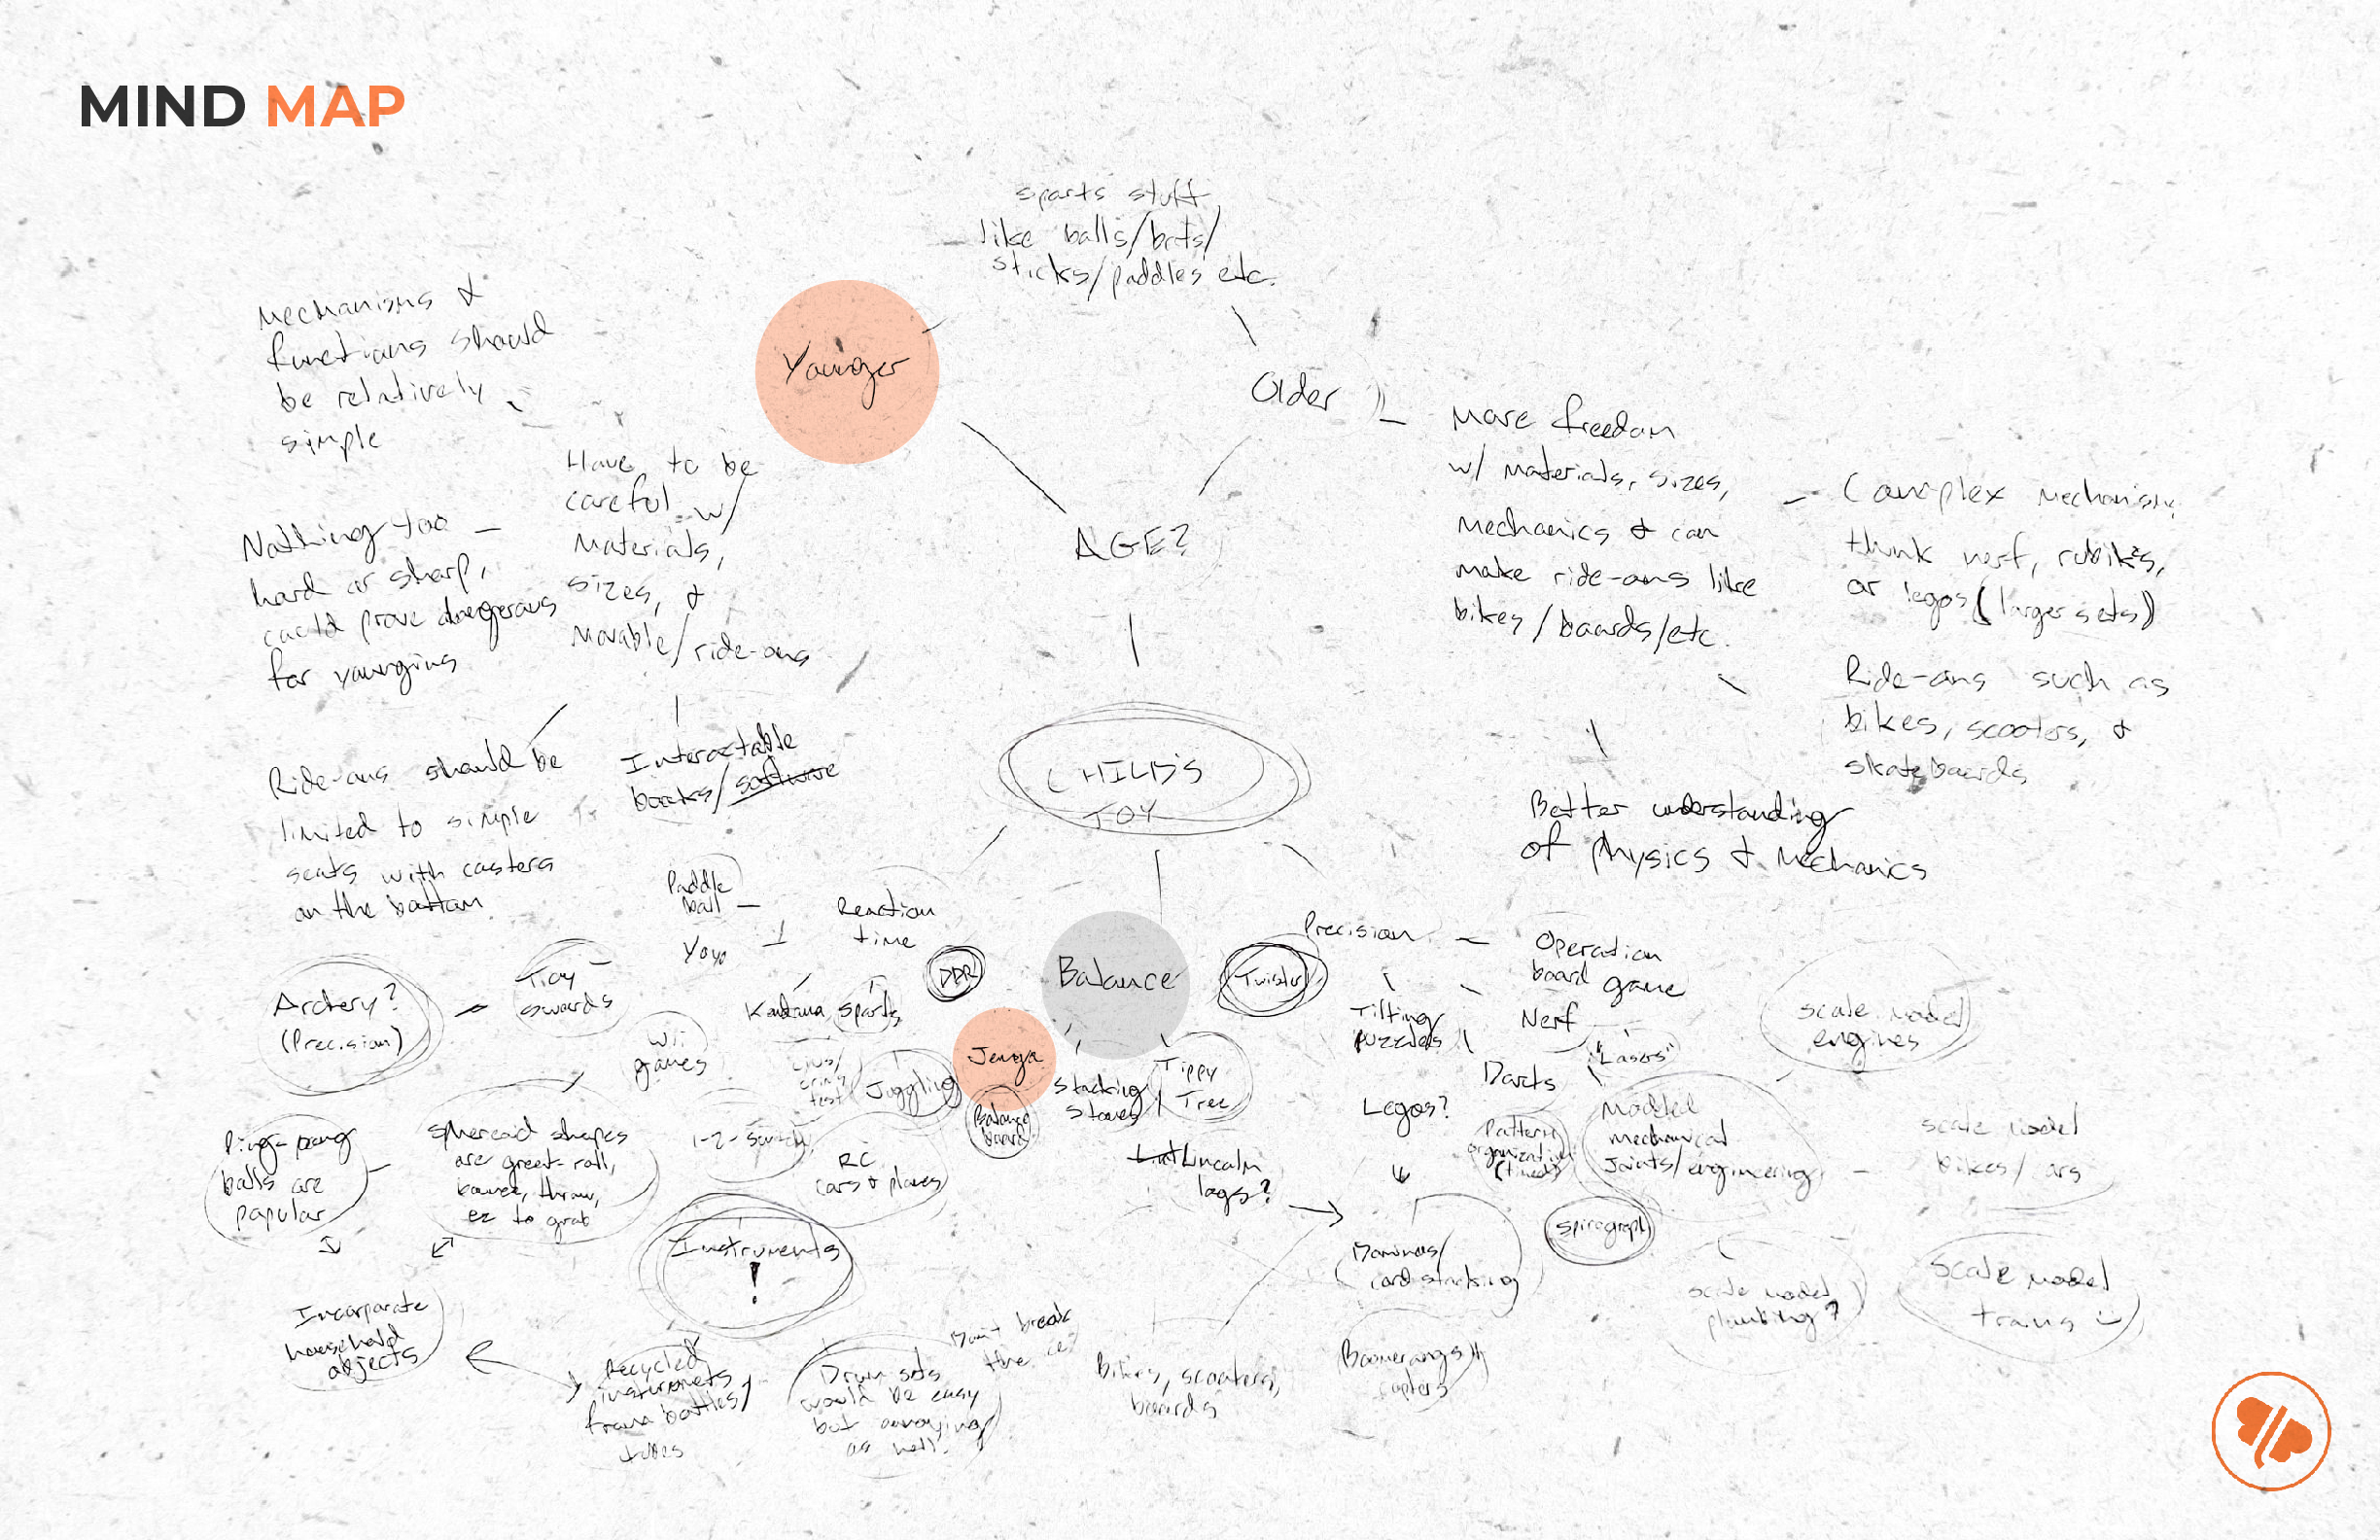 MIND MAP
sports stuff
like balls/bats/
sticks/paddles etc.
Younger
Older
AGE?
Mechanisms &
functions should
be relatively
simple
Have to be
careful w/
Materials,
sizes, &
Movable/ride-ons
Nothing too
hard or sharp,
could prove dangerous
for youngins
Ride-ons should be
limited to simple
seats with casters
on the bottom
Interactable
books/software
More freedom
w/ materials, sizes,
mechanics & can
make ride-ons like
bikes/boards/etc.
Complex Mechanisms
think nerf, rubik's,
or legos (larger sets)
Ride-ons such as
bikes, scooters, &
skateboards
Better understanding
of physics & Mechanics
CHILD'S
TOY
Paddle
ball
Yoyo
Reaction
time
Kendama
Sports
DDR
Balance
Twister
Precision
Operation
board game
Tilting
puzzles
Nerf
"Lasers"
Darts
Legos?
Archery?
(Precision)
Toy
swords
Wii
games
test
Juggling
Jenga
Balance
board
Stacking
stones
Tippy
Tree
Lincoln
logs?
Pattern
organization
(timed)
Modded
mechanical
Joints/engineering
scale model
engines
scale model
bikes/cars
Ping-pong
balls are
popular
spheroid shapes
are great-roll,
bounce, throw,
ez to grab
1-2-Switch
RC
cars & planes
Instruments
!
Dominos/
card stacking
Spirograph
scale model
plumbing?
scale model
trains :)
Incorporate
household
objects
Recycled
instruments
from bottles/
tubes
Drum sets
would be easy
but annoying
as hell.
Don't break
the ice
Bikes, scooters,
boards
Boomerangs/
copters